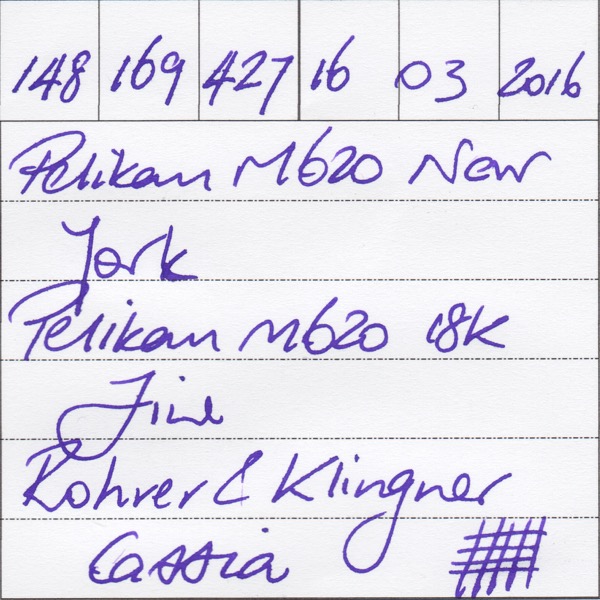 148 169 427 16 03 2016
Pelikan M620 New
York
Pelikan M620 18K
Fine
Rohrer & Klingner
Cassia